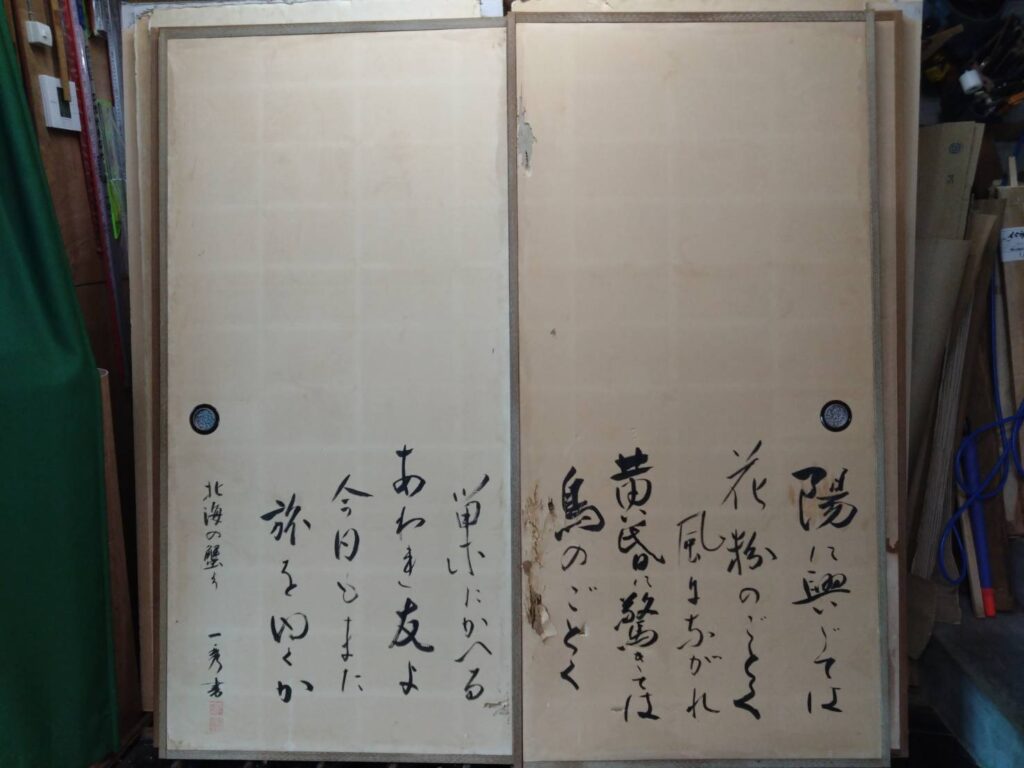 陽に興じては
花粉のごとく
風にながれ
黄昏に驚きては
鳥のごとく
巣にかへる
あわれ友よ
今日もまた
旅をゆくか
北海の蟹より
一秀書